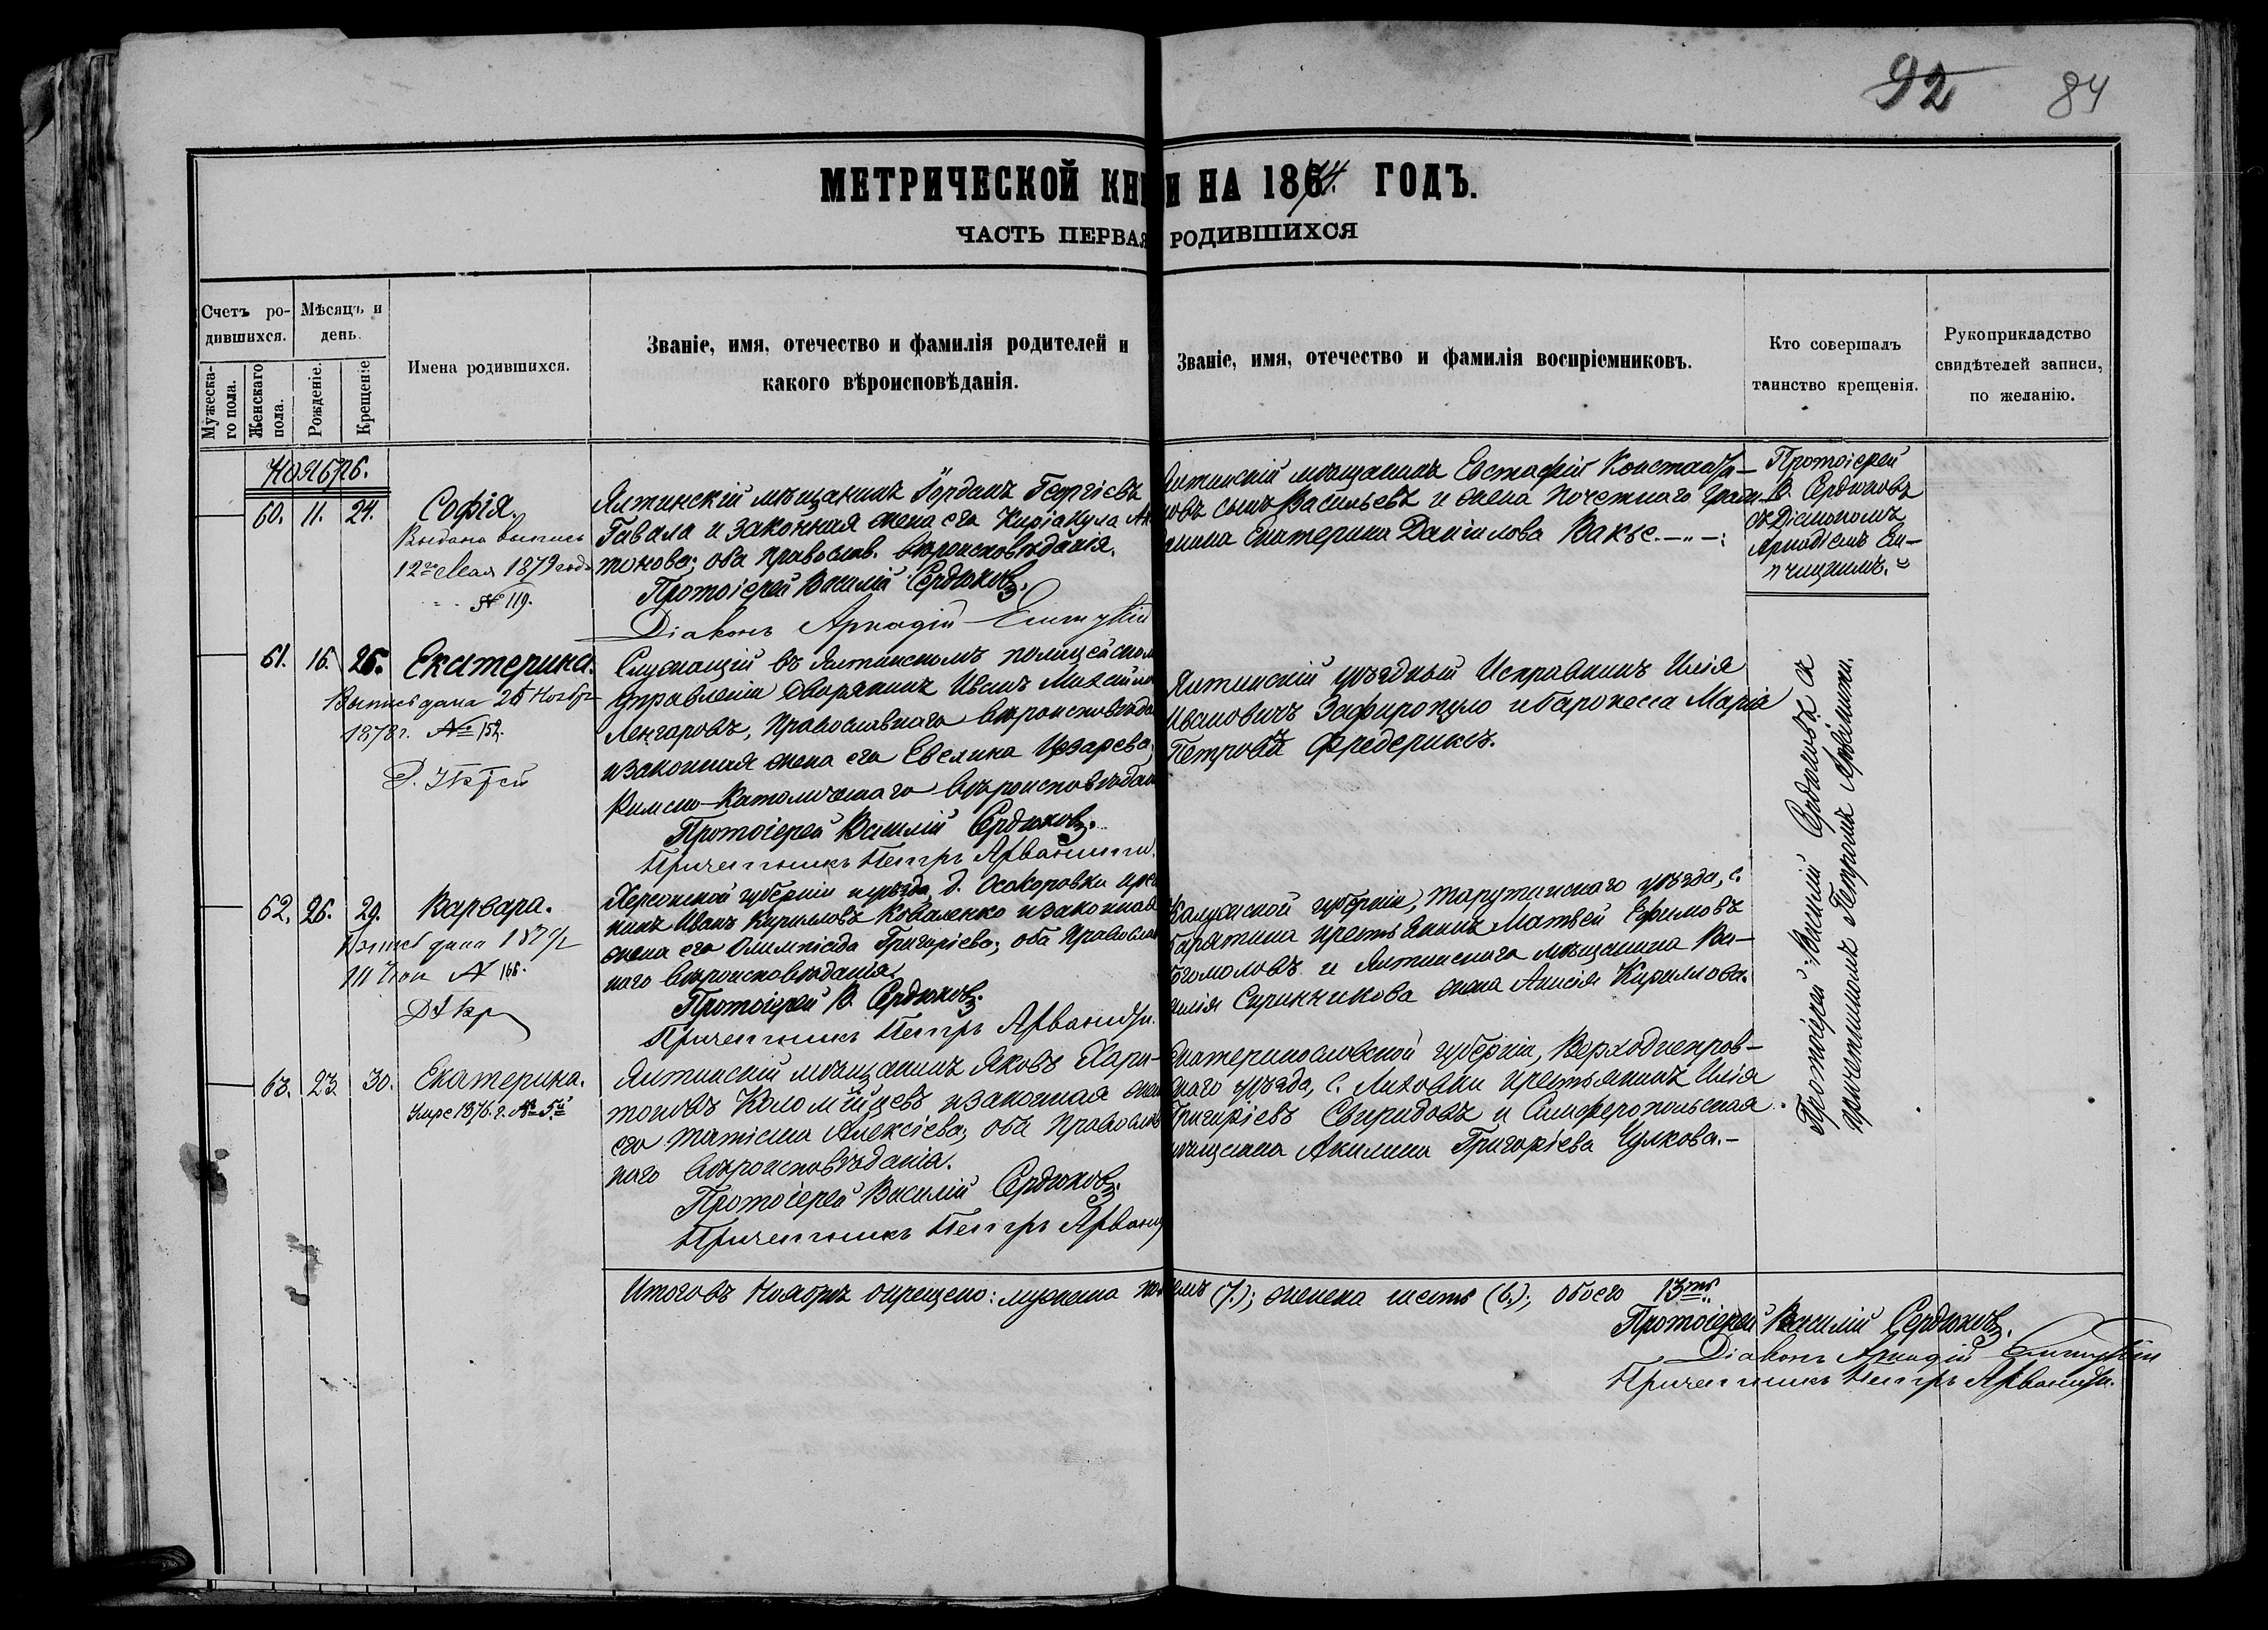 92 84
МЕТРИЧЕСКОЙ КНИ И НА 1874. ГОДЪ.
ЧАСТЬ ПЕРВАЯ РОДИВШИХСЯ
Счетъ ро-
дившихся.
Мужеска-
го пола.
Женскаго
пола.
Мѣсяцъ и
день.
Рожденіе.
Крещеніе
Имена родившихся.
Званіе, имя, отечество и фамилія родителей и
какого вѣроисповѣданія.
Званіе, имя, отечество и фамилія воспріемниковъ.
Кто совершалъ
таинство крещенія.
Рукоприкладство
свидѣтелей записи,
по желанію.
Ноябрь.
60. 11. 24. Софія.
Выдана выпись
12го Мая 1879 года
№ 119.
Ялтинскій мѣщанинъ Іорданъ Георгіевъ
Гавала и законная жена его Киріакула Ан
тонова; оба православ. вѣроисповѣданія.
Протоіерей Василій Сердюковъ.
Діаконъ Аркадій
Ялтинскій мѣщанинъ Евстафій Константи-
новъ сынъ Васильевъ и жена почетнаго граж-
нина Екатерина Даніилова Ваксе.
Протоіерей
В. Сердюковъ
съ Діакономъ
Аркадіемъ
61. 16. 26. Екатерина.
Выпись дана 28 Ноябр
1878 г. № 152.
Служащій въ Ялтинскомъ полицейском
управленіи Дворянинъ Иванъ Михайлов
Ленгаровъ, православнаго вѣроисповѣда
и законная жена его Евелина Цезарева,
Римско-Католическаго вѣроисповѣдан
Протоіерей Василій Сердюковъ.
Причетникъ Петръ Арванити.
Ялтинскій уѣздный Исправникъ Илія
Ивановичъ Зафиропуло и баронесса Марія
Петровна Фредериксъ.
Протоіерей Василій Сердюковъ съ
причетникомъ Петромъ Арванити.
62. 26. 29. Варвара.
№ 166.
Херсонской губерніи и уѣзда, д. Осокоровки крест
нинъ Иванъ Кирилловъ Коваленко и законная
жена его Олимпіада Григоріева; оба православ
наго вѣроисповѣданія.
Протоіерей В. Сердюковъ.
Причетникъ Петръ Арванити.
Калужской губерніи, Тарутинскаго уѣзда, с.
Барятина крестьянинъ Матвей Ефимовъ
Богомоловъ и Ялтинскаго мѣщанина Ва-
силія Скринникова жена Анисія Кириллова.
63. 23 30. Екатерина.
1876. г. № 5й
Ялтинскій мѣщанинъ Яковъ Хари-
тоновъ Коломійцевъ и законная жена
его Татіана Алексіева; оба православ
наго вѣроисповѣданія.
Протоіерей Василій Сердюковъ.
Причетникъ Петръ Арвани
Екатеринославской губерніи, Верходнепров-
скаго уѣзда, с. Лиховки крестьянинъ Илія
Григоріевъ Свиридовъ и Симферопольская
мѣщанка Акилина Григоріева Чулкова.
Итого въ Ноябрѣ окрещено: мужеска поломъ (7.); женска шесть (6.); обоего 13ть.
Протоіерей Василій Сердюковъ.
Діаконъ Аркадій
Причетникъ Петръ Арванити.